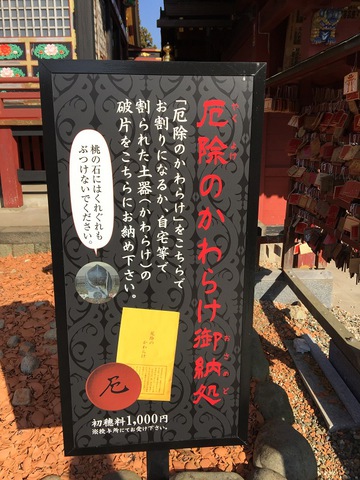 厄除のかわらけ御納処
やくよけ
おさめど
「厄除のかわらけ」をこちらで
お割りになるか、自宅等で
割られた土器(かわらけ)の
破片をこちらにお納め下さい。
桃の石にはくれぐれも
ぶつけないでください。
厄除の
かわらけ
厄
初穂料1,000円
※授与所にてお受け下さい。